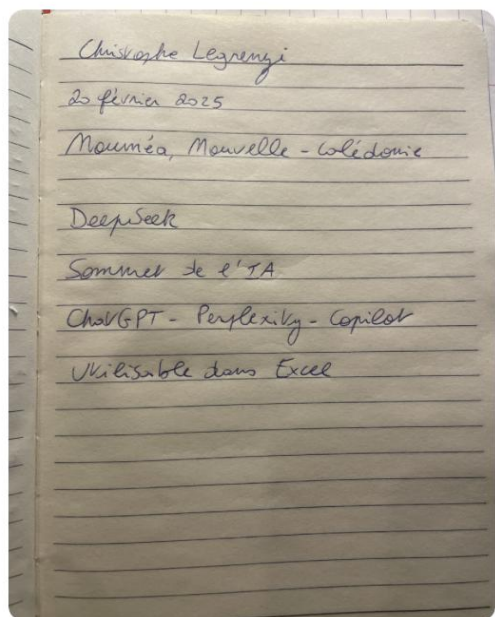 Christophe Legrenzi
20 février 2025
Nouméa, Nouvelle-Calédonie
DeepSeek
Sommet de l'IA
ChatGPT - Perplexity - Copilot
Utilisable dans Excel